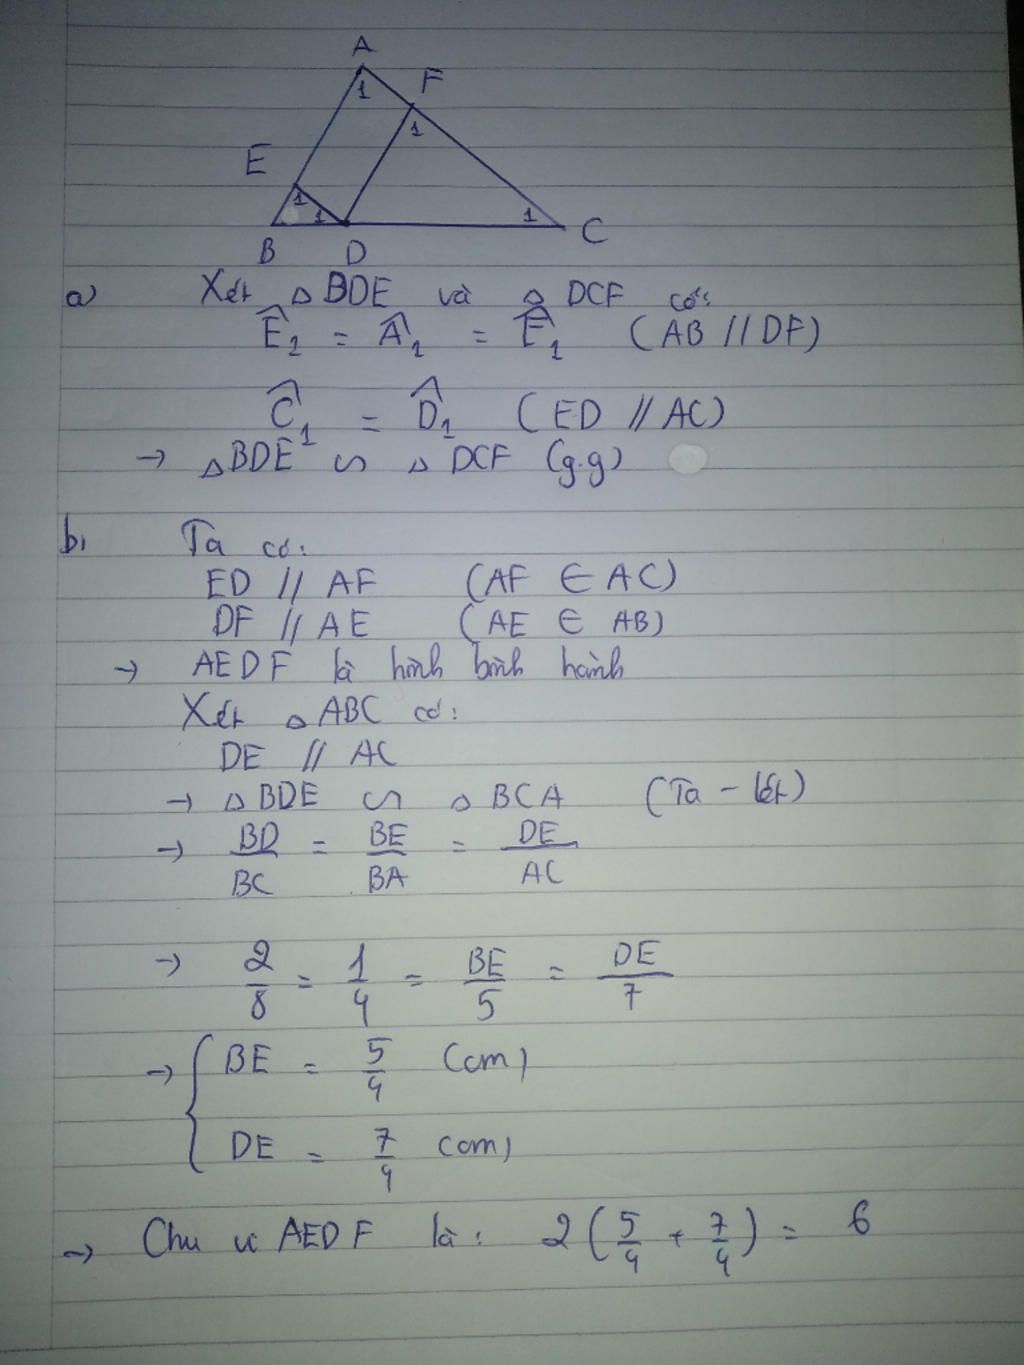 A
F
1
1
E
1
1
1
C
B
D
a) Xét △BDE và △DCF có:
Ê₂ = Â₁ = F̂₁ (AB // DF)
Ĉ₁ = D̂₁ (ED // AC)
→ △BDE ∽ △DCF (g.g)
b, Ta có:
ED // AF (AF ∈ AC)
DF // AE (AE ∈ AB)
→ AEDF là hình bình hành
Xét △ABC có:
DE // AC
→ △BDE ∽ △BCA (Ta-lét)
→ BD/BC = BE/BA = DE/AC
→ 2/8 = 1/4 = BE/5 = DE/7
→ { BE = 5/4 (cm)
DE = 7/4 (cm)
→ Chu vi AEDF là: 2(5/4 + 7/4) = 6